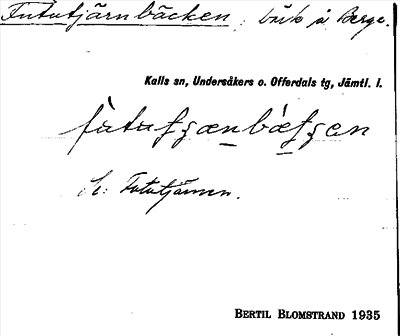 Fututjärnbäcken, bäck på Berge.
Kalls sn, Undersåkers o. Offerdals tg, Jämtl. l.
Se: Fututjärnen.
BERTIL BLOMSTRAND 1935